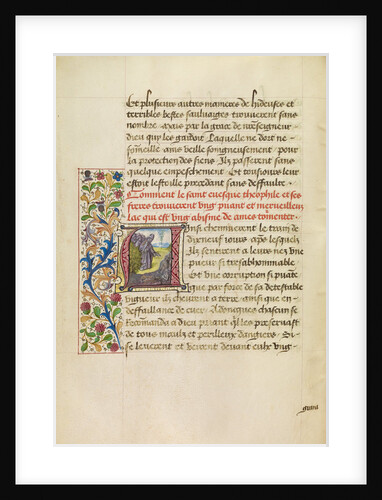 Et plusieurs autres manieres de hideuses et
terribles bestes sauluaiges trouuerent sans
nombre. Mais par la grace de n(ost)reseigneur
dieu qui les gardoit. Laquelle ne dort ne
so(m)meille ains veille soingneusement pour
la protection des siens. Ilz passerent sans
quelque empeschement. Et tousiours leur
estoit lestoille precedant sans deffaulte.
Comment le saint euesque theophile et ses
freres trouuerent vng puant et merueilleux
lac qui est vng abisme de ames tourmenter.
Ains cheuucherent le train de
dixneuf iours apres lesquelz
Ilz sentirent a leurs nez vne
pueur si tresabhominable
Et vne corruption si puante
que par force de sa detestable
vigueur ilz cheurent a terre ainsi que en
deffaillance de cuer. Adoncques chascun se
reco(m)manda a dieu priant q(ui)l les preseruast
de tous maulx et perilleux dangiers. Si
se leuerent et veirent deuant eulx vng
grant